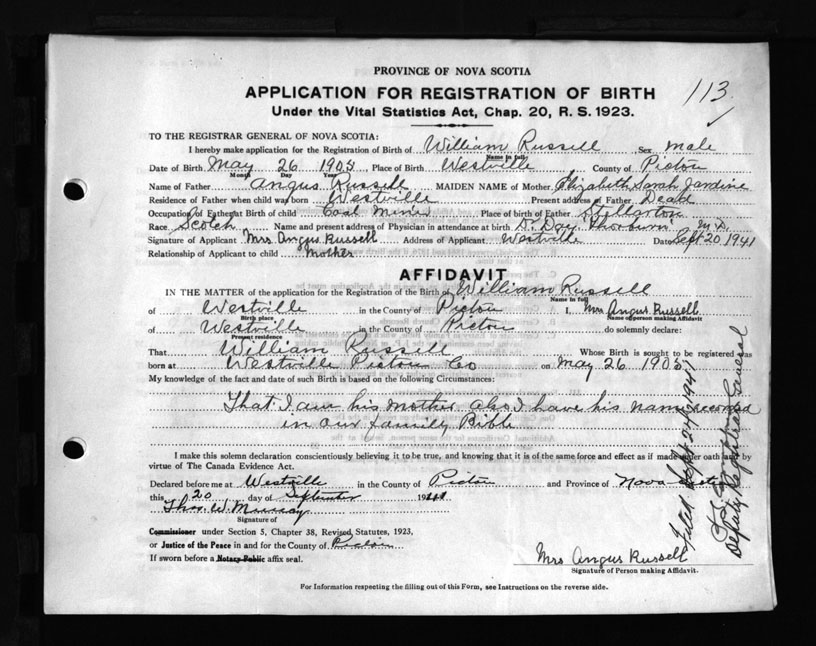 PROVINCE OF NOVA SCOTIA
APPLICATION FOR REGISTRATION OF BIRTH
113
Under the Vital Statistics Act, Chap. 20, R. S. 1923.
TO THE REGISTRAR GENERAL OF NOVA SCOTIA:
I hereby make application for the Registration of Birth of William Russell Sex male
Name in full
Date of Birth May 26 1905 Place of Birth Westville County of Pictou
Month Day Year
Name of Father Angus Russell MAIDEN NAME of Mother Elizabeth Sarah Jardine
Residence of Father when child was born Westville Present address of Father Dead
Occupation of Father at Birth of child Coal Miner Place of birth of Father Stellarton
Race Scotch Name and present address of Physician in attendance at birth Dr. Day. Thorburn N.S.
Signature of Applicant Mrs. Angus Russell Address of Applicant Westville Date Sept 20 1941
Relationship of Applicant to child Mother
AFFIDAVIT
IN THE MATTER of the application for the Registration of the Birth of William Russell
Name in full
of Westville in the County of Pictou I, Mrs Angus Russell
Birth place Name of person making Affidavit
of Westville in the County of Pictou do solemnly declare:
Present residence
That William Russell Whose Birth is sought to be registered was
born at Westville Pictou Co on May 26 1905
My knowledge of the fact and date of such Birth is based on the following Circumstances:
That I am his mother also I have his name record
in our family Bible
I make this solemn declaration conscientiously believing it to be true, and knowing that it is of the same force and effect as if made under oath and by
virtue of The Canada Evidence Act.
Declared before me at Westville in the County of Pictou and Province of Nova Scotia
this 20 day of September 1941
Thos. W. Murray
Signature of
Commissioner under Section 5, Chapter 38, Revised Statutes, 1923,
or Justice of the Peace in and for the County of Pictou
If sworn before a Notary Public affix seal.
Mrs Angus Russell
Signature of Person making Affidavit.
For Information respecting the filling out of this Form, see Instructions on the reverse side.
Filed Sept 24 1941
Deputy Registrar General